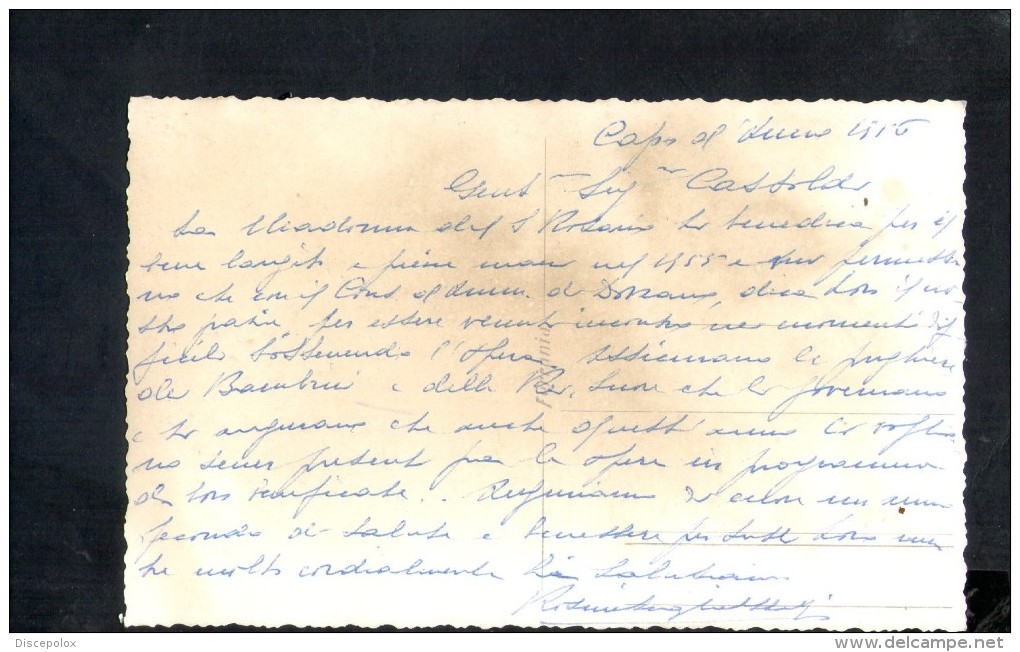 Capo d'Anno 1956
Gent Sig Castoldi
La Madonna del S Rosario La benedica per il
bene largito a piene mani nel 1955 e
no che con il Cons. d'Amm. di Dorzano, dica Loro il no-
stro patire, per essere venuto incontro nei momenti dif
ficili sostenendo l'opera. Assicurano le preghiere
dei Bambini e delle Rev. Suore che lo governano
e Le augurano che anche quest'anno La voglia
no tener presente fra le opere in programma
da Loro beneficate.. Auguriamo di cuore un anno
fecondo di salute e benessere per tutti Loro men
tre molto cordialmente La salutiamo
Discepolox
www.delcampe.net